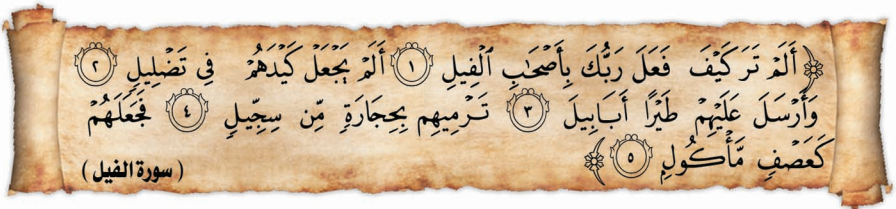 ﴿ أَلَمْ تَرَ كَيْفَ فَعَلَ رَبُّكَ بِأَصْحَٰبِ ٱلْفِيلِ ١ أَلَمْ يَجْعَلْ كَيْدَهُمْ فِى تَضْلِيلٍ ٢
وَأَرْسَلَ عَلَيْهِمْ طَيْرًا أَبَابِيلَ ٣ تَرْمِيهِم بِحِجَارَةٍ مِّن سِجِّيلٍ ٤ فَجَعَلَهُمْ
كَعَصْفٍ مَّأْكُولٍ ٥ ﴾
( سورة الفيل )